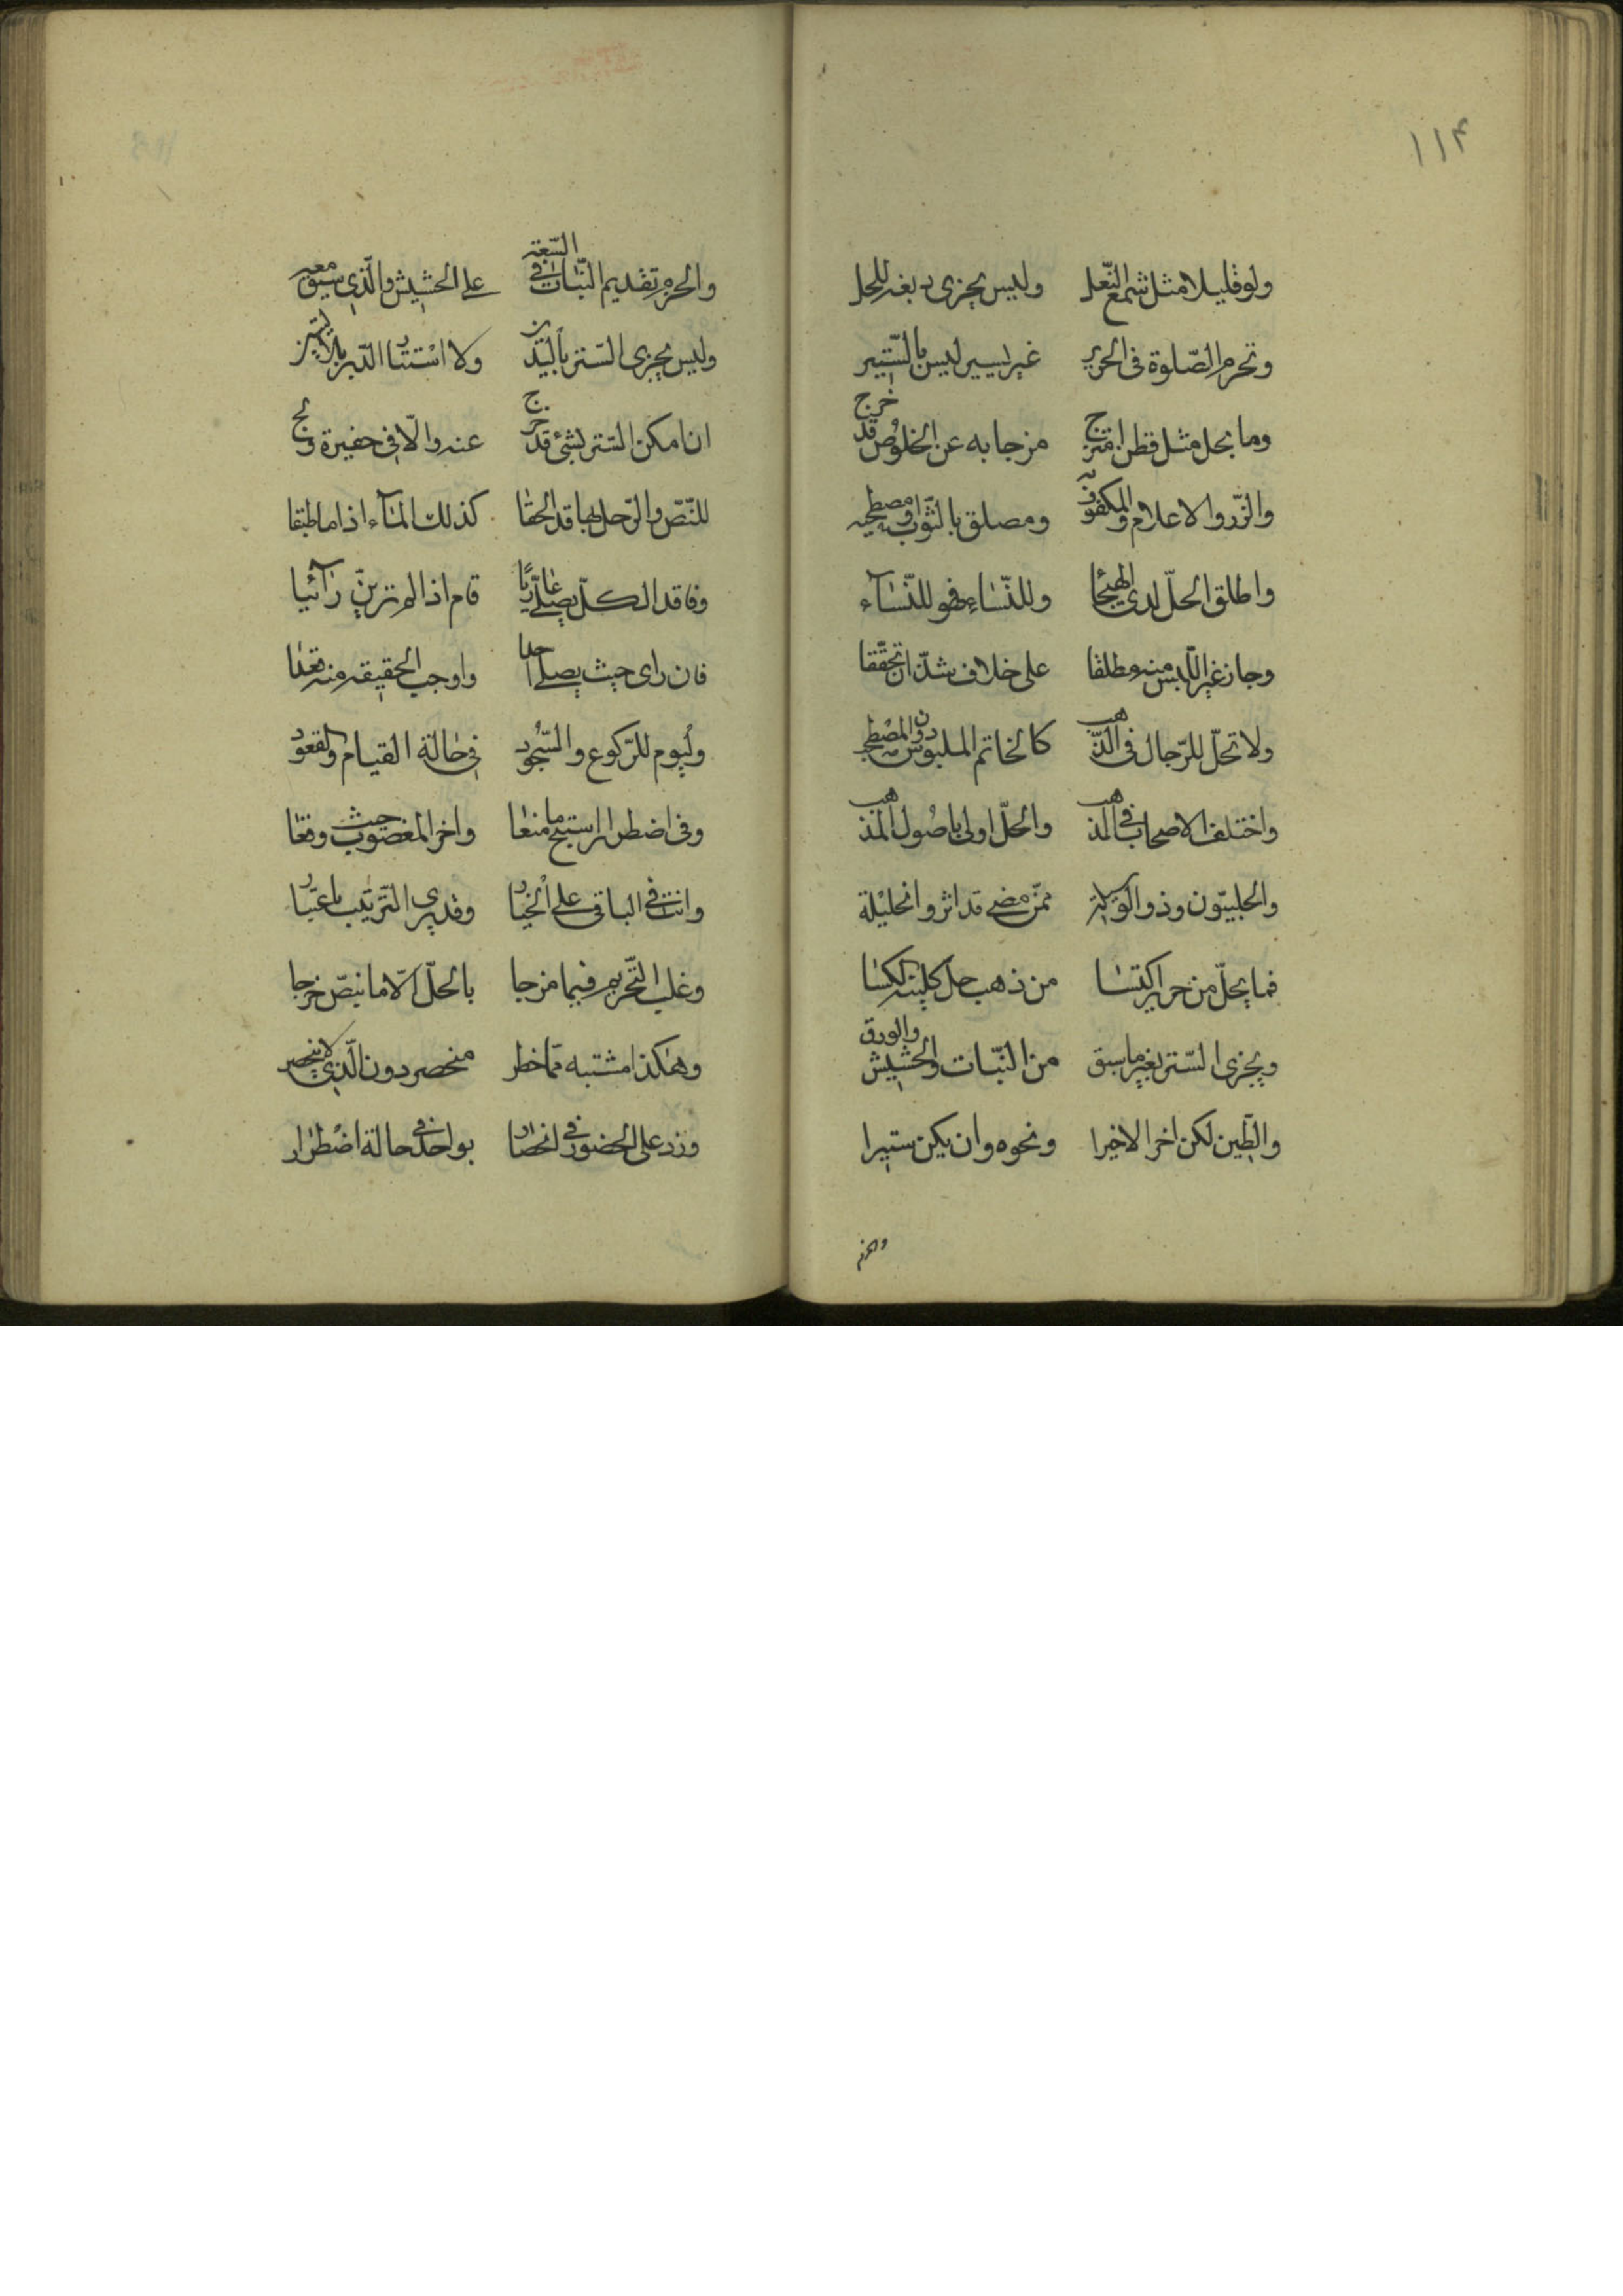 ١١٤
ولو قليلا مثل شمع النعل وليس يجزى دبغه للحل
وتحرم الصّلوة فى الحرير غير يسير ليس بالستير
وما يحل مثل قطن امتزج مزجا به عن الخلوص قد خرج
والزّر والاعلام والمكفوف ومصلق بالثوب
واطلق الحلّ لدى الهيجا وللنّساء فهو للنّسآء
وجاز غير اللّبس منه مطلقا على خلاف شذّ ان تحقّقا
ولا تحلّ للرّجال فى الذّهب كالخاتم الملبوس دون المصطحب
واختلف الاصحاب فى المذهب والحلّ اولى باصول المذهب
والحلبيّون وذو الوسيلة ممّن مضى قد اثروا تحليله
فما يحلّ من حرير اكتسا من ذهب حلّ كلبنة الكسا
ويجزى السّتر بغير ما سبق من النّبات والحشيش والورق
والطّين لكن اخر الاخيرا ونحوه وان يكن ستيرا
والحزم
والحزم تقديم النّبات فى السّعة على الحشيش والّذى سيق معه
وليس يجزى السّتر باليدين ولا استتار الدّبر بالاليتين
ان امكن السّتر بشئ قد خرج عنه والّا فى حفيرة ولج
للنّصّ والوحل بها قد الحقا كذلك المآء اذا ما طبقا
وفاقد الكلّ يصلّى عاريًا قام اذا لم ترين رآئيا
فان راى حيث يصلى احدا واوجب الحقيقه منه قعدا
وليوم للرّكوع والسّجود فى حالة القيام والقعود
وفى اضطرار استبح ما منعا واخر المغصوب حيث وقعا
وانت فى الباقى على الخيار وقد يرى التّرتيب باعتبار
وغلب التّحريم فيما مزجا بالحلّ الّا ما بنصّ خرجا
وهكذا مشتبه ممّا خطر منحصر دون الّذى لا ينحصر
وزد على الحضور فى انحصار بواحد فى حالة اضطرار